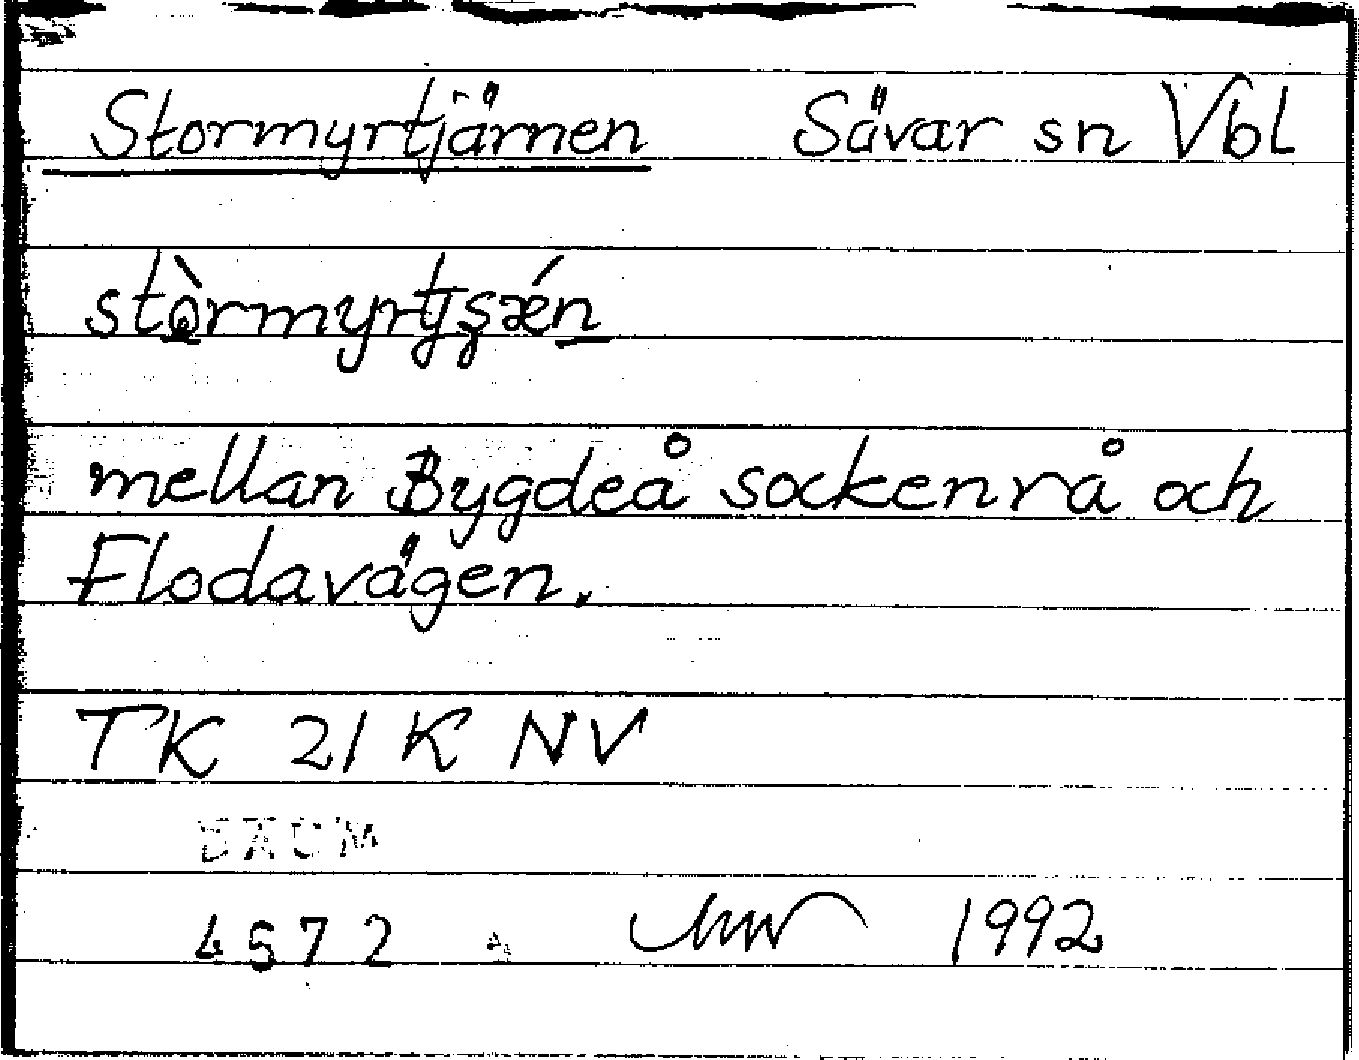 Stormyrtjärnen Sävar sn Vbl
stòrmyrtjʂǽn
mellan Bygdeå sockenrå och
Flodavägen.
TK 21 K NV
DAUM
4572 1992